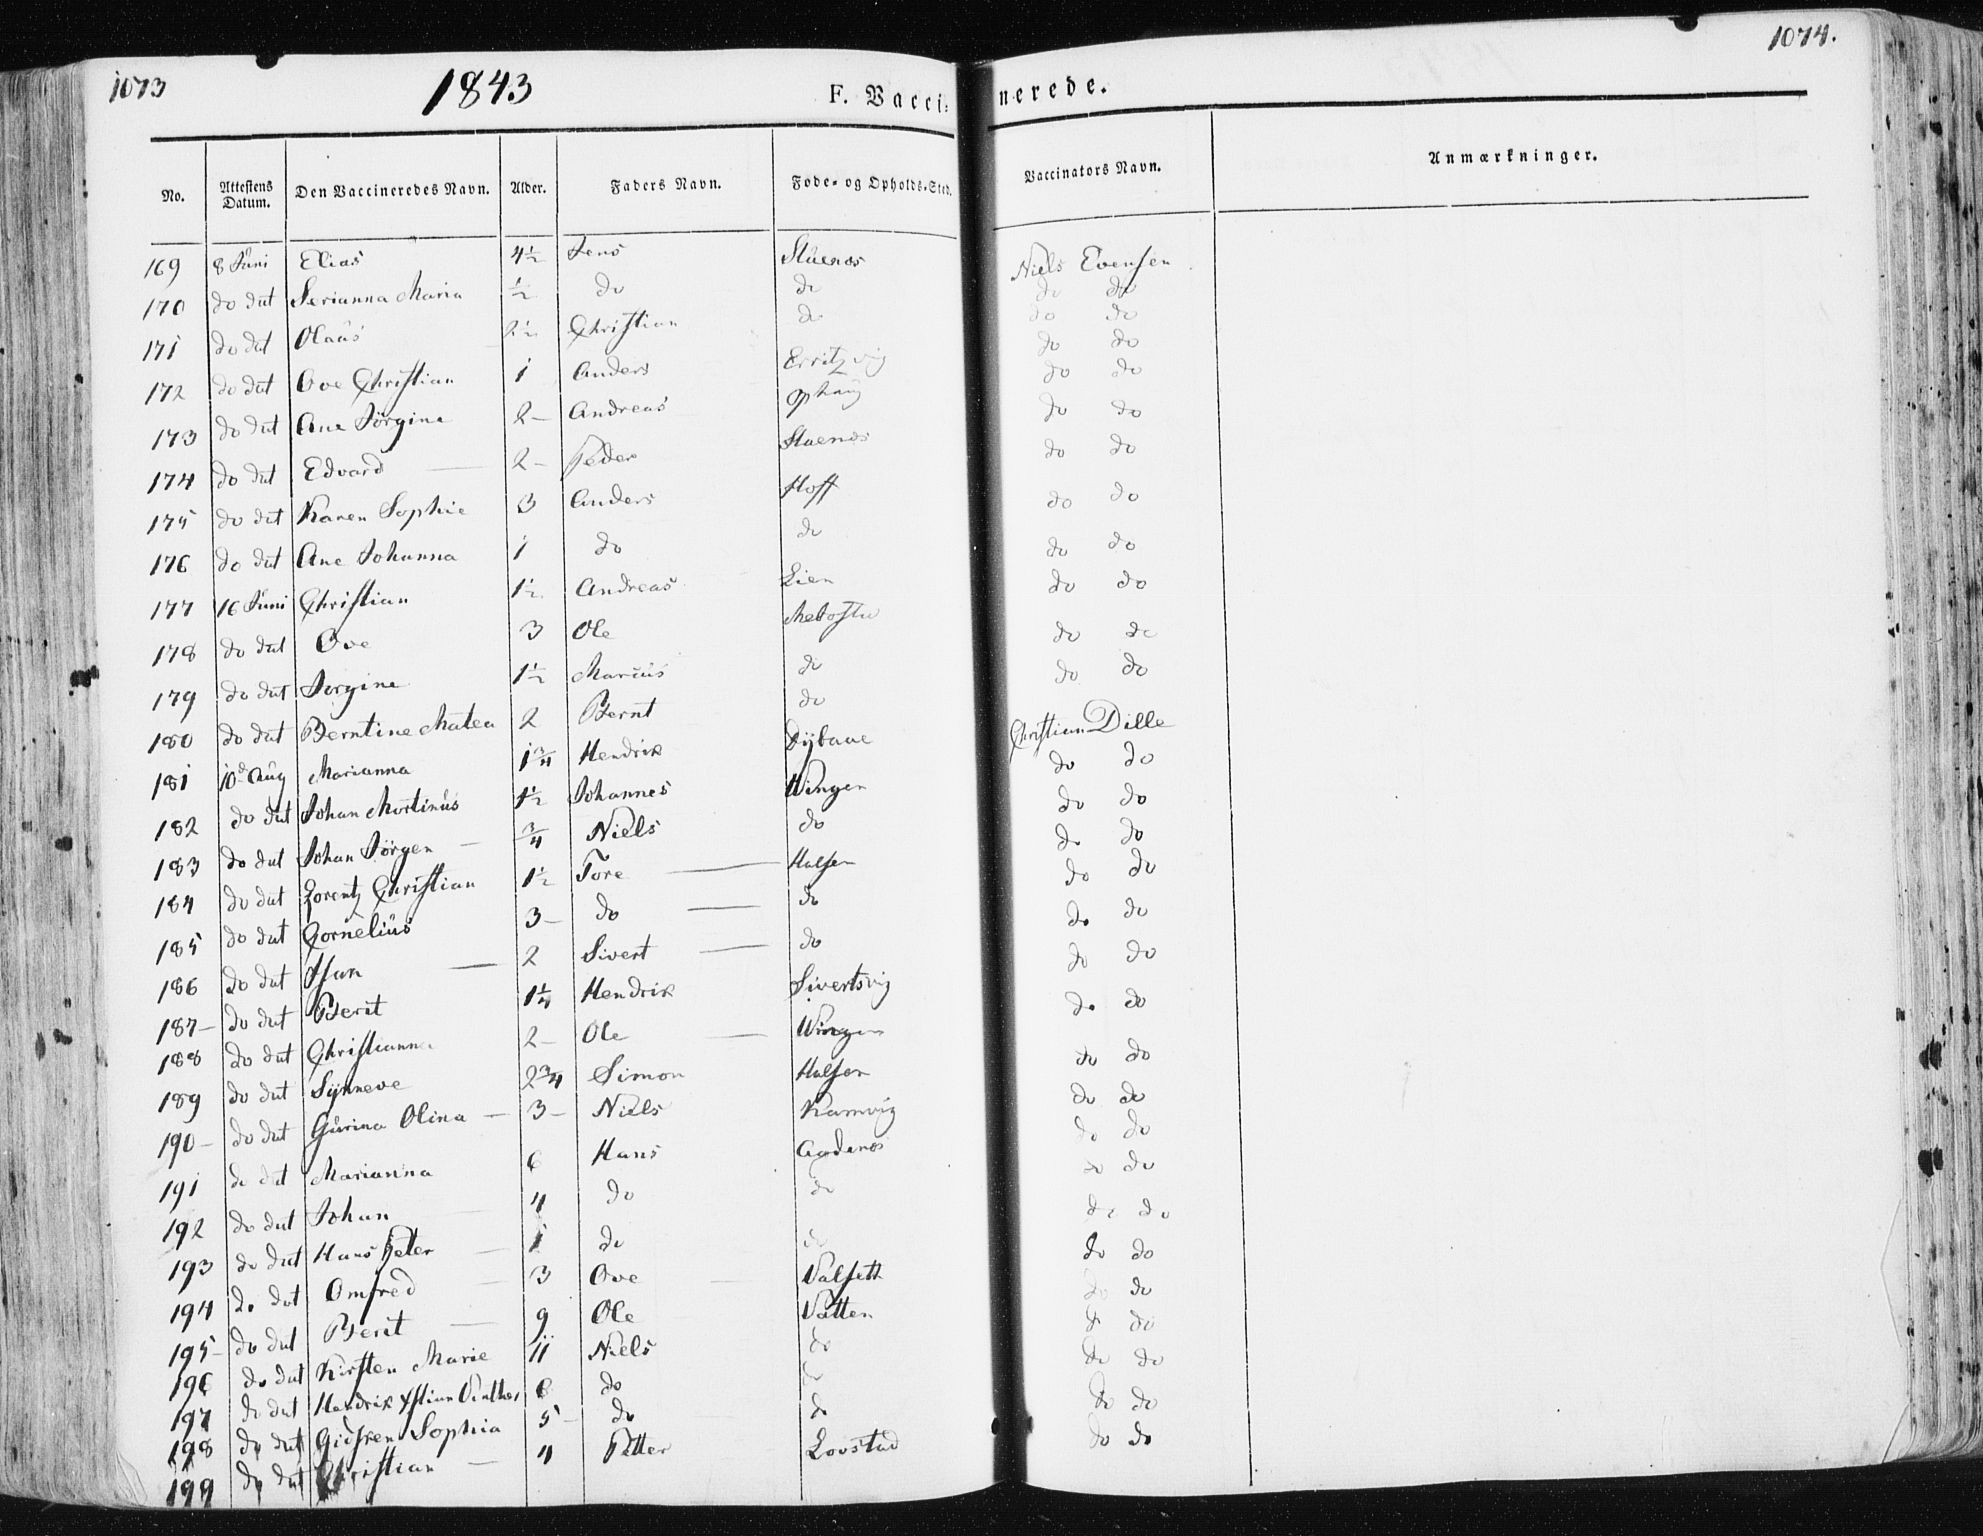 1073 1843 F. Vaccinerede. 1074.
No. Attestens Datum. Den Vaccineredes Navn. Alder. Faders Navn. Føde- og Opholds-Sted. Vaccinators Navn. Anmærkninger.
169 8 Juni Elias 4½ Jens Stuenæs Niels Evensen
170 do dat Serianna Maria ½ do do do do
171 do dat Olaus 2½ Christian do do do
172 do dat Ove Christian 1 Anders Erritzvig do do
173 do dat Ane Jörgine 2– Andreas Ophaug do do
174 do dat Edvard 2– Peder Stuenæs do do
175 do dat Karen Sophie 3 Anders Hoff do do
176 do dat Ane Johanna 1 do do do do
177 16 Juni Christian 1½ Andreas Lien do do
178 do dat Ove 3 Ole Mebostad do do
179 do dat Jorgine 1½ Marcus do do do
180 do dat Berntine Matea 2 Bernt do do do
181 10de Aug Marianna 1¾ Hendrik Dybaue Christian Dille
182 do dat Johan Mortinus 1½ Johannes Wingen do do
183 do dat Johan Jörgen – ¾ Niels do do do
184 do dat Lorentz Christian 1½ Tore – Halsen do do
185 do dat Cornelius 3– do – do do do
186 do dat Isan – 2 Sivert – do do do
187– do dat Berit 1¼ Hendrik Sivertsvig do do
188 do dat Christianna 2– Ole – Wingen do do
189 do dat Synneve 2¾ Simon Halsen do do
190– do dat Gurina Olina – 3– Niels Ramvig do do
191 do dat Marianna 6 Hans do do
192 do dat Johan 4 do do do do
193 do dat Hans Peter – 1 do do do do
194 do dat Omfred – 3 Ove – Valsett do do
195– do dat Berit – 9 Ole Vatten do do
196 do dat Kirsten Marie 11 Niels do do do
197 do dat Hendrik Xstian 6 do do do do
198 do dat Gidsren Sophia 5– do do do do
199 do dat Christian – 4 Petter Lovstad do do